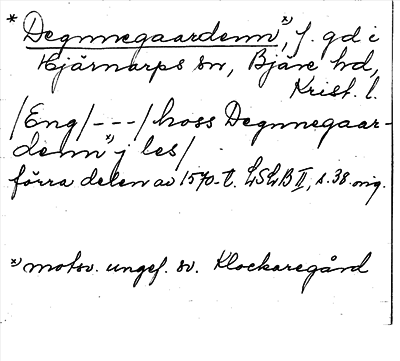 * Degnnegaardenn *), f. gd i
Hjärnarps sn, Bjäre hd,
Krist. l.
/Eng/---/hoss Degnnegaar-
denn *) j les/
förra delen av 1570-t. LSLB II, s. 38. orig.
*) motsv. ungef. sv. Klockaregård